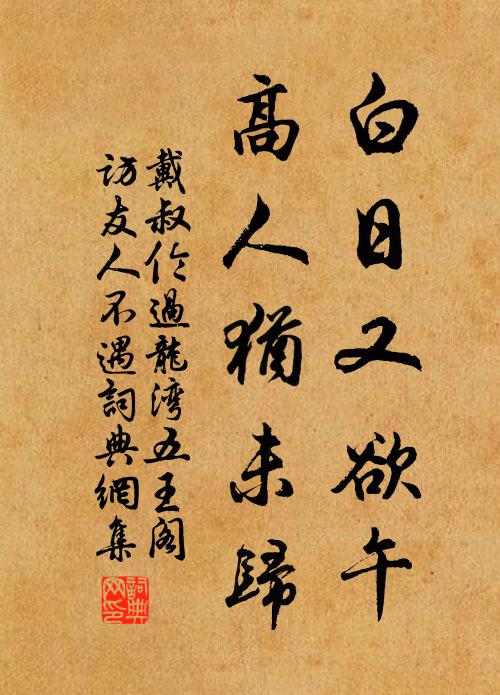 白日又欲午
高人猶未歸
戴叔伦過龍湾五王阁
访友人不遇詞典網集
詞典網印